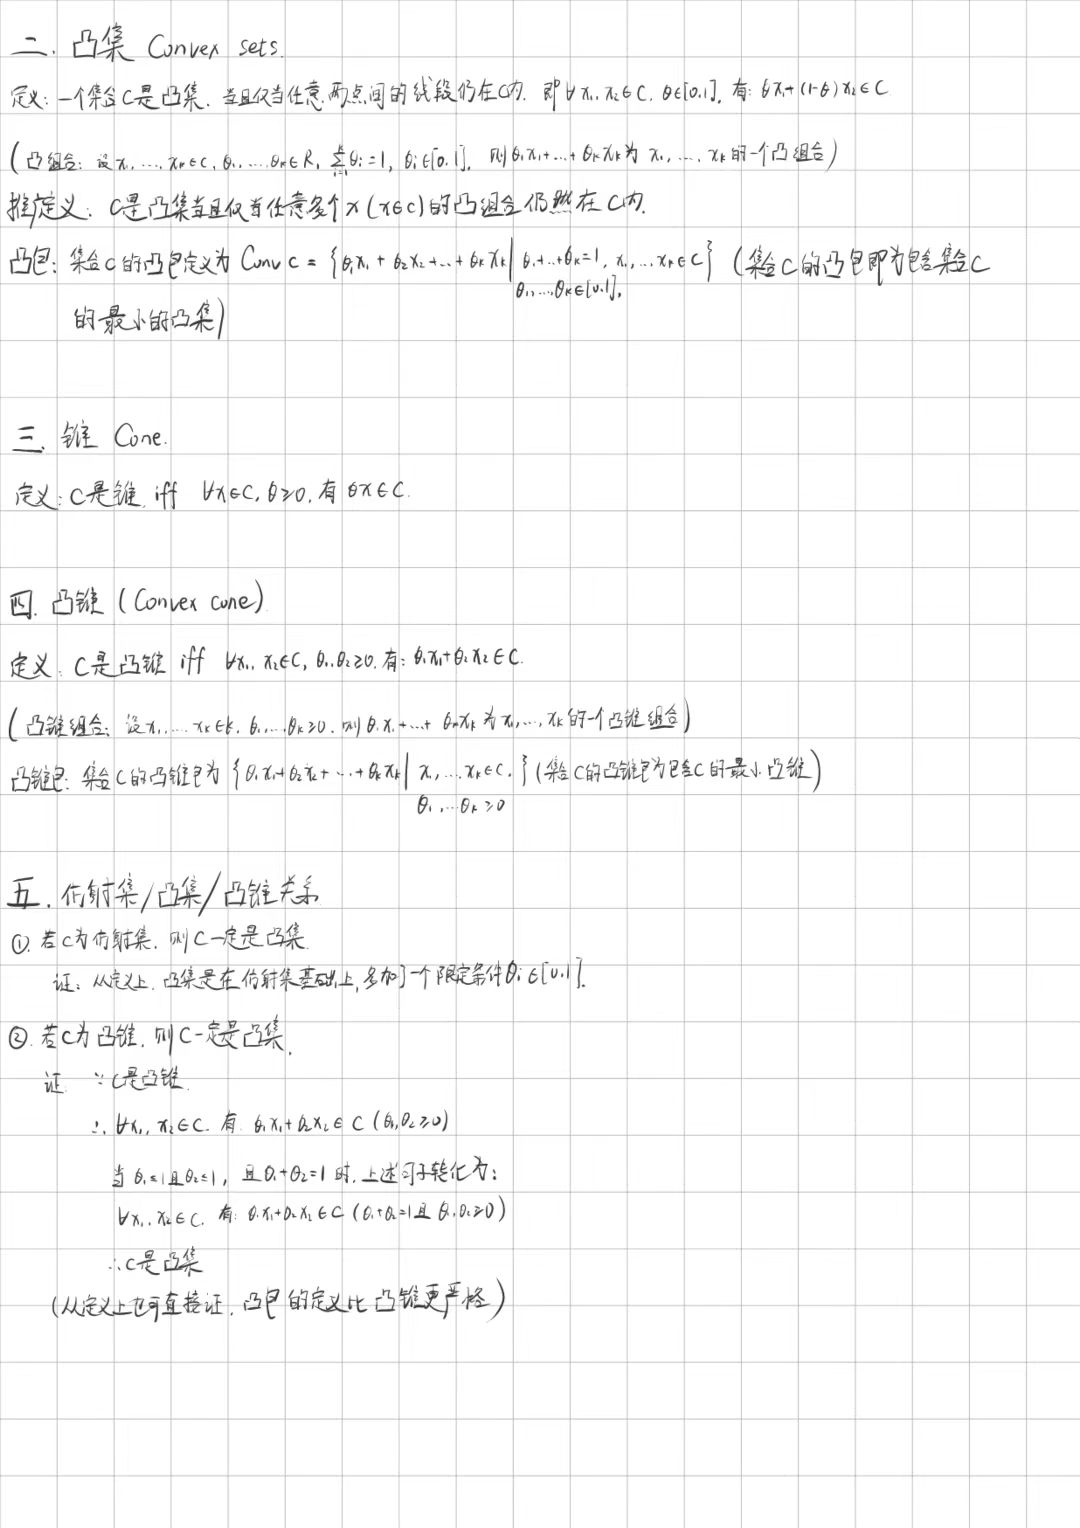 二. 凸集 Convex sets.
定义: 一个集合C是凸集. 当且仅当任意两点间的线段仍在C内. 即∀x₁, x₂∈C, θ∈[0,1], 有: θx₁+(1-θ)x₂∈C
(凸组合: 设x₁, …, xₖ∈C, θ₁, …, θₖ∈R, Σᵢ₌₁ᵏ θᵢ=1, θᵢ∈[0,1], 则θ₁x₁+…+θₖxₖ为 x₁, …, xₖ的一个凸组合)
推广定义: C是凸集当且仅当任意多个x(x∈C)的凸组合仍然在C内.
凸包: 集合C的凸包定义为 Conv C = {θ₁x₁+θ₂x₂+…+θₖxₖ | θ₁+…+θₖ=1, x₁,…xₖ∈C} (集合C的凸包即为包含集合C
θ₁,…θₖ∈[0,1],
的最小的凸集)
三. 锥 Cone.
定义: C是锥 iff ∀x∈C, θ≥0, 有 θx∈C.
四. 凸锥 (Convex cone)
定义: C是凸锥 iff ∀x₁, x₂∈C, θ₁,θ₂≥0. 有: θ₁x₁+θ₂x₂∈C.
(凸锥组合: 设x₁,…xₖ∈C, θ₁,…θₖ≥0, 则θ₁x₁+…+θₖxₖ为x₁,…,xₖ的一个凸锥组合)
凸锥包: 集合C的凸锥包为 {θ₁x₁+θ₂x₂+…+θₖxₖ | x₁,…xₖ∈C.} (集合C的凸锥包为包含C的最小凸锥)
θ₁,…θₖ≥0
五. 仿射集/凸集/凸锥关系
①. 若C为仿射集, 则C一定是凸集
证: 从定义上, 凸集是在仿射集基础上, 多加了一个限定条件θᵢ∈[0,1].
②. 若C为凸锥, 则C一定是凸集.
证 ∵C是凸锥
∴ ∀x₁, x₂∈C. 有 θ₁x₁+θ₂x₂∈C (θ₁,θ₂≥0)
当 θ₁≤1且θ₂≤1, 且θ₁+θ₂=1时, 上述句子转化为:
∀x₁, x₂∈C, 有: θ₁x₁+θ₂x₂∈C (θ₁+θ₂=1且θ₁,θ₂≥0)
∴C是凸集
(从定义上也可直接证, 凸包的定义比凸锥更严格)